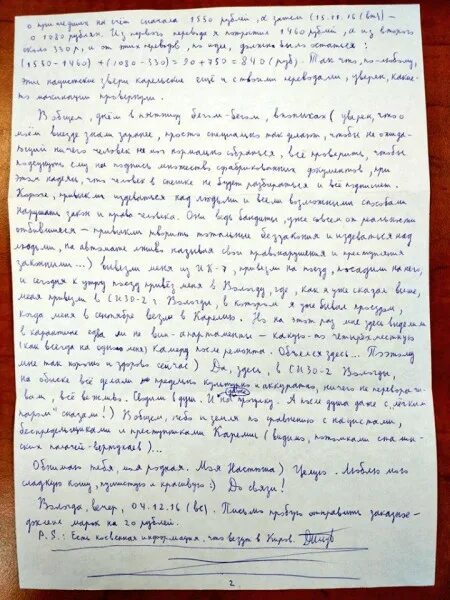 о пришедших на счёт сначала 1550 рублей, а затем (15.11.16 (вт)) –
о 1080 рублях. Из первого перевода я потратил 1460 рублей, а из второго
около 330 р., и от этих переводов, по идее, должно было остаться:
(1550-1460) + (1080-330) = 90 + 750 = 840 (руб). Так что, по-любому,
эти нацистские звери карельские ещё и с твоими переводами, уверен, какие-
то махинации провернули.
В общем, днём в пятницу бегом-бегом, впопыхах (уверен, что о
моём выезде знали заранее, просто специально так делают, чтобы не ожида-
ющий ничего человек не мог нормально собраться, всё проверить, чтобы
подсунуть ему на подпись множество сфабрикованных документов, при
этом надеясь, что человек в спешке не будет разбираться и всё подпишет.
Короче, привыкли издеваться над людьми и всеми возможными способами
нарушать закон и права человека. Они ведь бандиты, уже совсем от реальности
отбившиеся – привыкли творить тотальные беззакония и издеваться над
людьми, на автомате лживо называя свои правонарушения и преступления
законными...) вывезли меня из ИК-7, привезли на поезд, посадили на него,
и сегодня к утру поезд привёз меня в Вологду, где, как я уже сказал выше,
меня привезли в СИЗО-2 г. Вологды, в котором я уже бывал проездом,
когда меня в сентябре везли в Карелию. Но на этот раз мне здесь выделили
в карантине едва ли не вип-апартаменты – какую-то четырёхместную
(как всегда на одного меня) камеру после ремонта. Обчелся здесь... Поэтому
мне так хорошо и здорово сейчас) Да, здесь, в СИЗО-2 Вологды,
на обыске всё делали предельно культурно и аккуратно, ничего не перевора чи-
вали, всё вежливо. Сводили в душ. И на прогулку. А после душа даже "с лёгким
паром" сказали!) В общем, небо и земля по сравнению с нацистами,
беспредельщиками и преступниками Карелии (видимо, потомками сталин-
ских палачей-вертухаев)...
Обнимаю тебя, моя родная. Моя Настюша) Целую. Люблю мою
сладкую кошу, пушистую и красивую :) До связи!
Вологда, вечер, 04.12.16 (вс). Письмо пробую отправить заказное-
марок на 20 рублей.
P.S.: Есть косвенная информация, что везут в Киров.
2